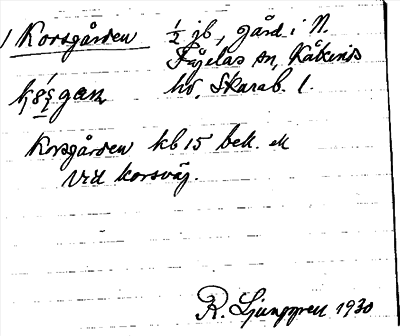 1 Korsgården ½ jb, gård i N.
Fågelås sn, Kåkinds
hd, Skarab. l.
gan
Korsgården kb 15 bek. ek
Vid korsväg.
R. Ljunggren 1930